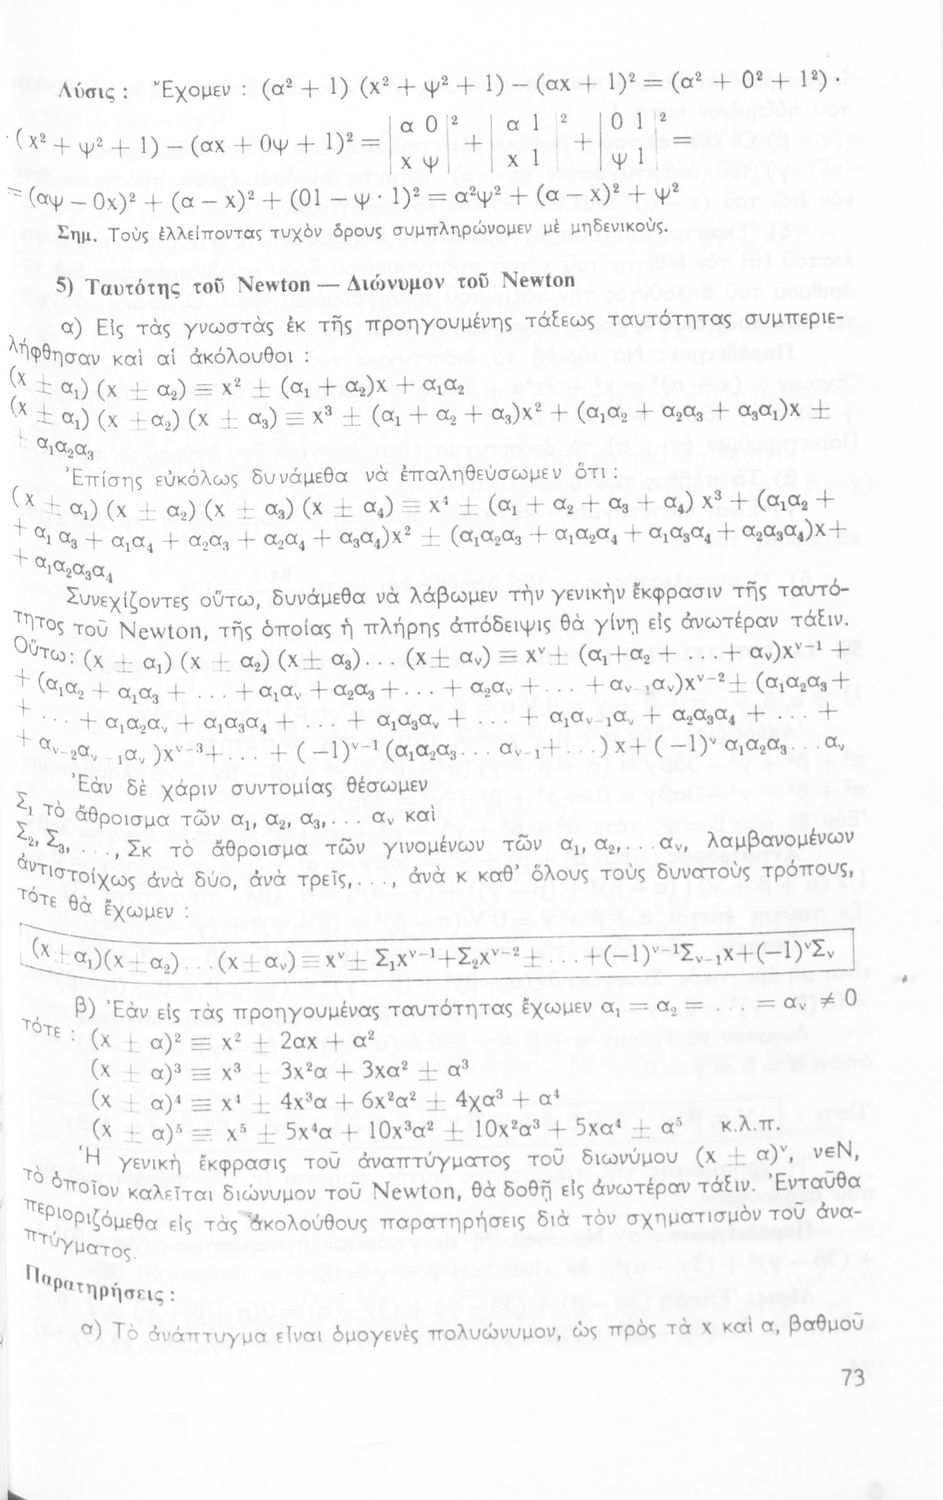 Λύσις : Ἔχομεν : (α² + 1) (x² + ψ² + 1) — (αx + 1)² = (α² + 0² + 1²) ·
· (x² + ψ² + 1) — (αx + 0ψ + 1)² = | α 0 |² + | α 1 |² + | 0 1 |² =
| x ψ | | x 1 | | ψ 1 |
= (αψ — 0x)² + (α — x)² + (01 — ψ . 1)² = α²ψ² + (α — x)² + ψ²
Σημ. Τοὺς ἐλλείποντας τυχὸν ὅρους συμπληρώνομεν μὲ μηδενικούς.
5) Ταυτότης τοῦ Newton — Διώνυμον τοῦ Newton
α) Εἰς τὰς γνωστὰς ἐκ τῆς προηγουμένης τάξεως ταυτότητας συμπεριε-
λήφθησαν καὶ αἱ ἀκόλουθοι :
(x ± α₁) (x ± α₂) ≡ x² ± (α₁ + α₂)x + α₁α₂
(x ± α₁) (x ±α₂) (x ± α₃) ≡ x³ ± (α₁ + α₂ + α₃)x² + (α₁α₂ + α₂α₃ + α₃α₁)x ±
± α₁α₂α₃
Ἐπίσης εὐκόλως δυνάμεθα νὰ ἐπαληθεύσωμεν ὅτι :
(x ± α₁) (x ± α₂) (x ± α₃) (x ± α₄) ≡ x⁴ ± (α₁ + α₂ + α₃ + α₄) x³ + (α₁α₂ +
+ α₁ α₃ + α₁α₄ + α₂α₃ + α₂α₄ + α₃α₄)x² ± (α₁α₂α₃ + α₁α₂α₄ + α₁α₃α₄ + α₂α₃α₄)x+
+ α₁α₂α₃α₄
Συνεχίζοντες οὕτω, δυνάμεθα νὰ λάβωμεν τὴν γενικὴν ἔκφρασιν τῆς ταυτό-
τητος τοῦ Newton, τῆς ὁποίας ἡ πλήρης ἀπόδειψις θὰ γίνῃ εἰς ἀνωτέραν τάξιν.
Οὕτω: (x ± α₁) (x ± α₂) (x± α₃). . . (x± αᵥ) ≡ xᵛ± (α₁+α₂ + . . . + αᵥ)xᵛ⁻¹ +
+ (α₁α₂ + α₁α₃ + . . . +α₁αᵥ +α₂α₃ +. . . + α₂αᵥ + . . . + αᵥ₋₁αᵥ)xᵛ⁻²± (α₁α₂α₃ +
+ . . . + α₁α₂αᵥ + α₁α₃α₄ + . . . + α₁α₃αᵥ + . . . + α₁αᵥ₋₁αᵥ + α₂α₃α₄ + . . . +
+ αᵥ₋₂αᵥ₋₁αᵥ )xᵛ⁻³+. . . . + ( —1)ᵛ⁻¹ (α₁α₂α₃. . . αᵥ₋₁+. . . ) x+ ( —1)ᵛ α₁α₂α₃. . . αᵥ
Ἐὰν δὲ χάριν συντομίας θέσωμεν
Σ₁ τὸ ἄθροισμα τῶν α₁, α₂, α₃,. . . αᵥ καὶ
Σ₂, Σ₃, . . . , Σκ τὸ ἄθροισμα τῶν γινομένων τῶν α₁, α₂,. . . αᵥ, λαμβανομένων
ἀντιστοίχως ἀνὰ δύο, ἀνὰ τρεῖς,. . . , ἀνὰ κ καθ' ὅλους τοὺς δυνατοὺς τρόπους,
τότε θὰ ἔχωμεν :
(x±α₁)(x±α₂). . . (x±αᵥ)≡xᵛ± Σ₁xᵛ⁻¹+Σ₂xᵛ⁻²± . . .+(—1)ᵛ⁻¹Σᵥ₋₁x+(—1)ᵛΣᵥ
β) Ἐὰν εἰς τὰς προηγουμένας ταυτότητας ἔχωμεν α₁ = α₂ = . . . = αᵥ ≠ 0
τότε : (x ± α)² ≡ x² ± 2αx + α²
(x ± α)³ ≡ x³ ± 3x²α + 3xα² ± α³
(x ± α)⁴ ≡ x⁴ ± 4x³α + 6x²α² ± 4χα³ + α⁴
(x ± α)⁵ ≡ x⁵ ± 5x⁴α + 10x³α² ± 10x²α³ + 5xα⁴ ± α⁵ κ.λ.π.
Ἡ γενικὴ ἔκφρασις τοῦ ἀναπτύγματος τοῦ διωνύμου (x ± α)ᵛ, νεΝ,
τὸ ὁποῖον καλεῖται διώνυμον τοῦ Newton, θὰ δοθῇ εἰς ἀνωτέραν τάξιν. Ἐνταῦθα
περιοριζόμεθα εἰς τὰς ἀκολούθους παρατηρήσεις διὰ τὸν σχηματισμὸν τοῦ ἀνα-
πτύγματος.
Παρατηρήσεις :
α) Τὸ ἀνάπτυγμα εἶναι ὁμογενὲς πολυώνυμον, ὡς πρὸς τὰ x καὶ α, βαθμοῦ
73